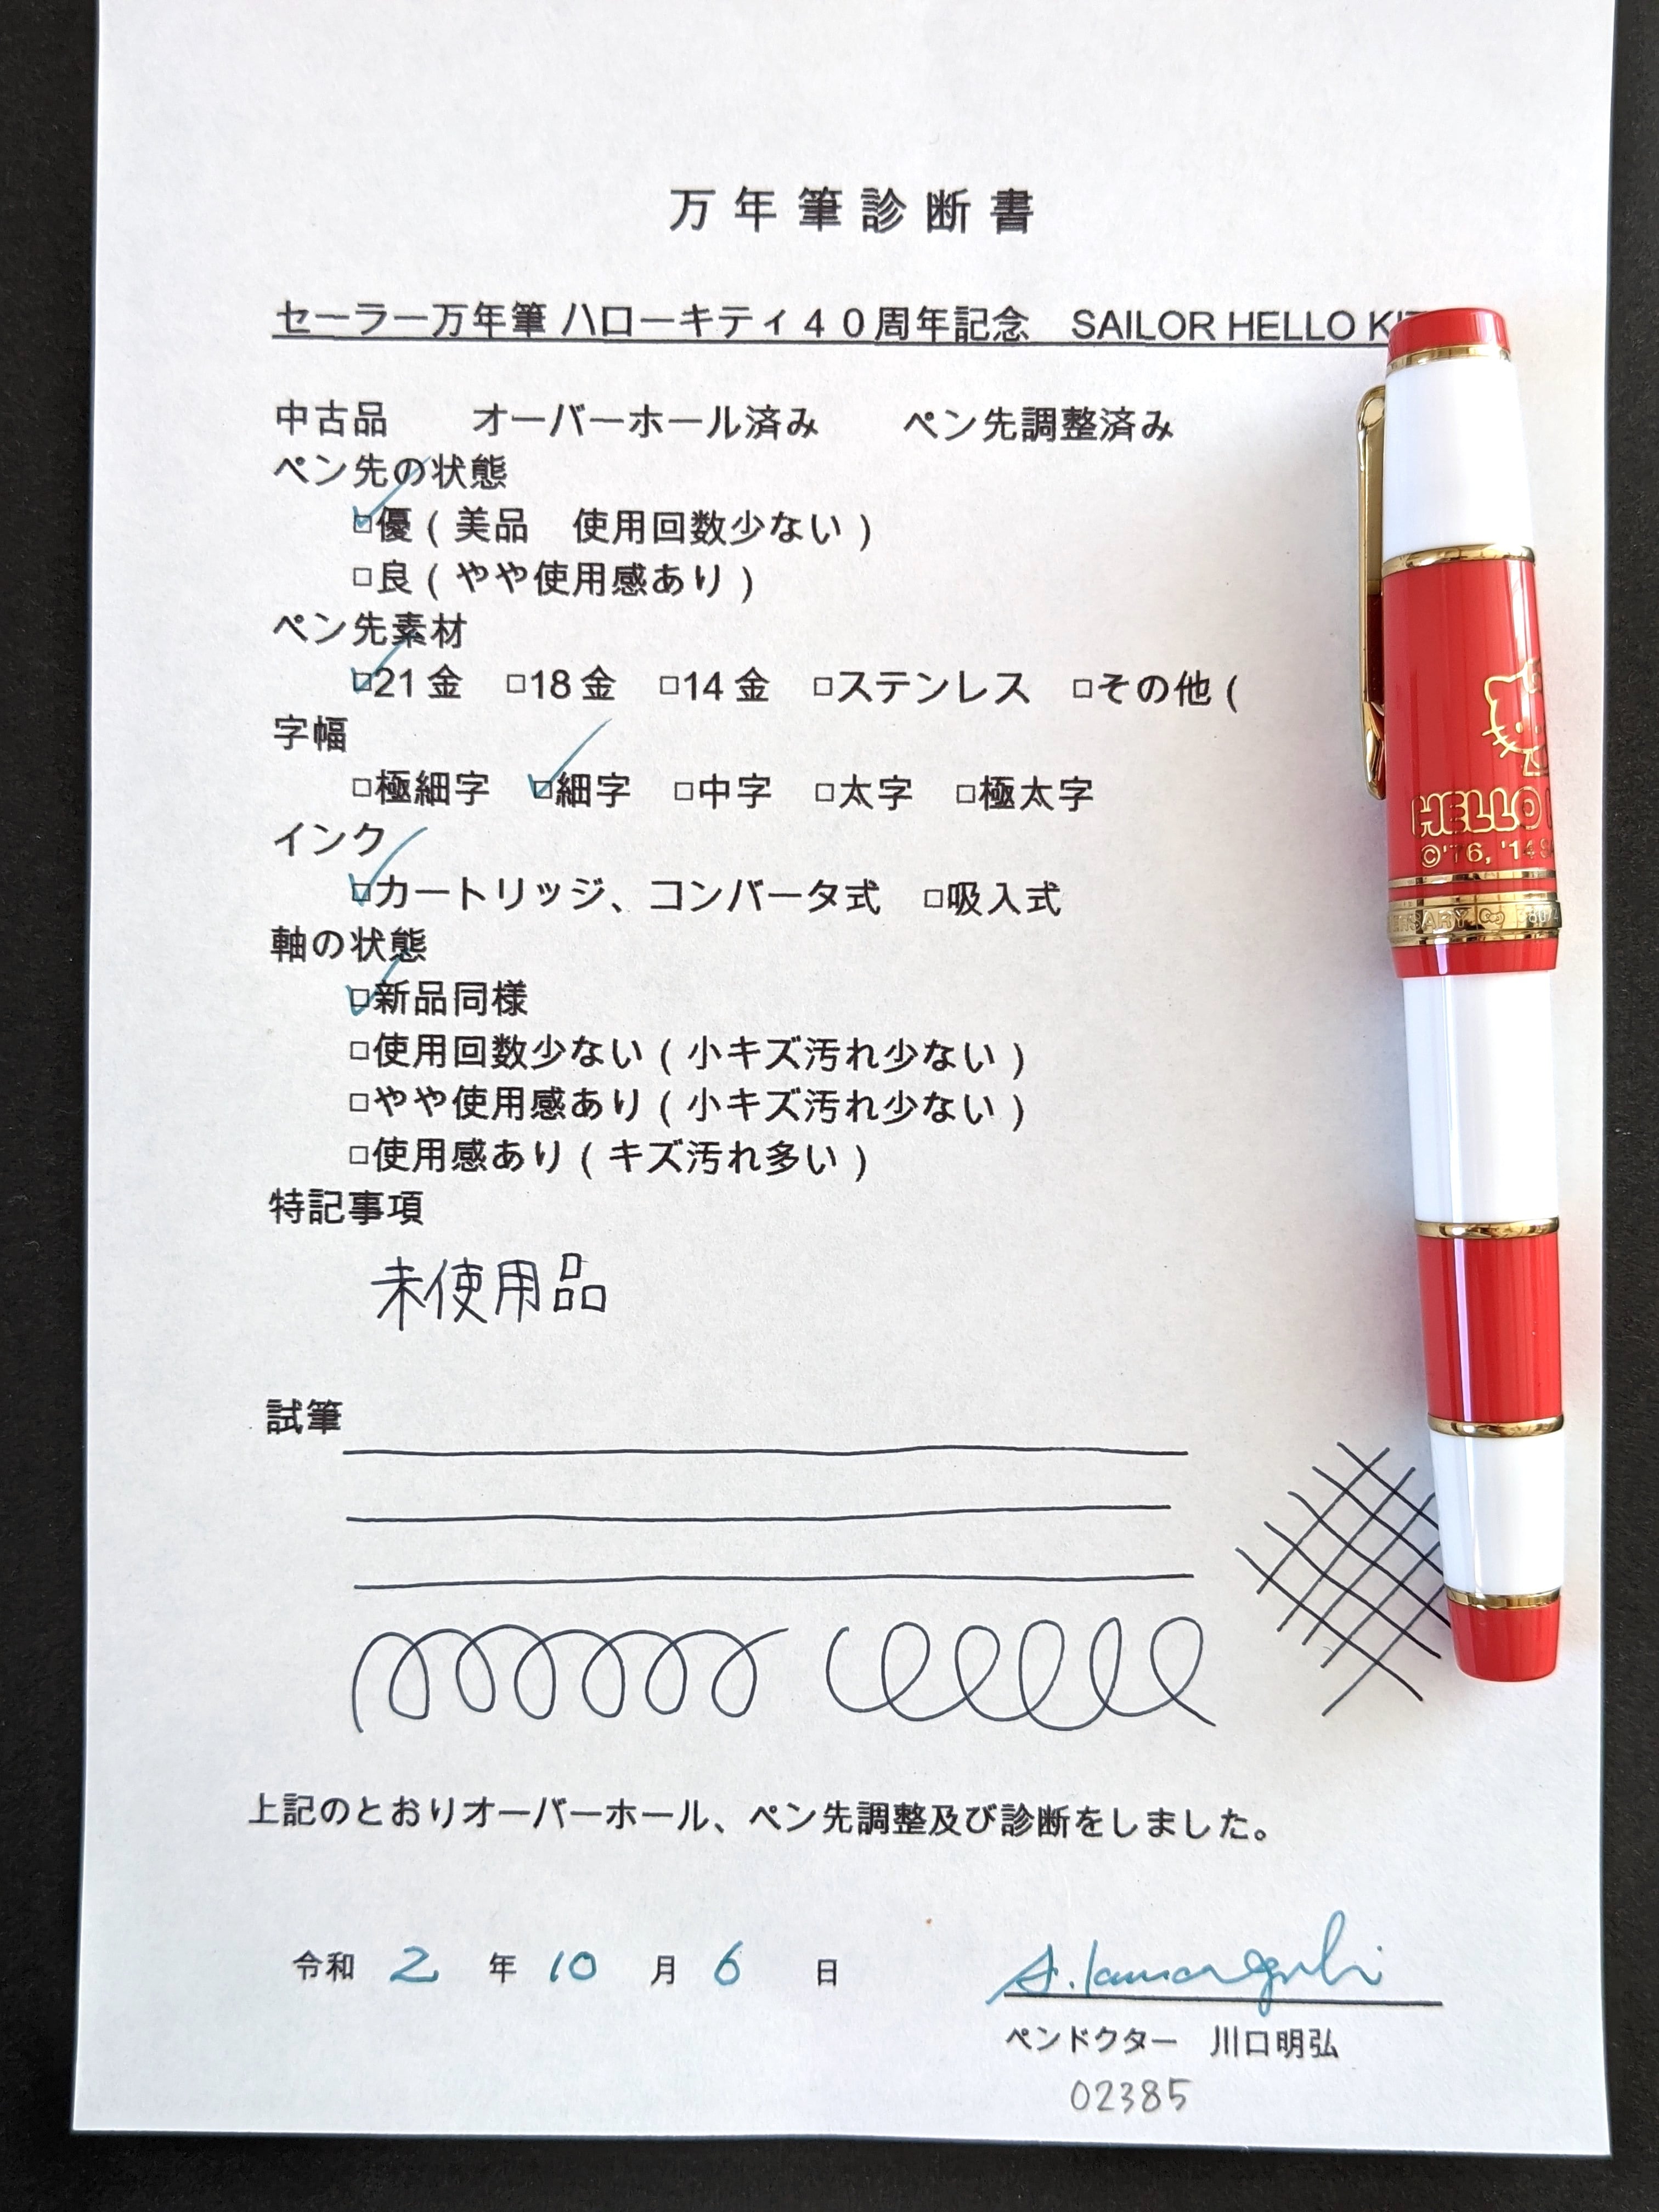 万年筆診断書
セーラー万年筆 ハローキティ４０周年記念　SAILOR HELLO
中古品　　オーバーホール済み　　ペン先調整済み
ペン先の状態
☑優（美品　使用回数少ない）
□良（やや使用感あり）
ペン先素材
☑21金　□18金　□14金　□ステンレス　□その他（
字幅
□極細字　☑細字　□中字　□太字　□極太字
インク
☑カートリッジ、コンバータ式　□吸入式
軸の状態
☑新品同様
□使用回数少ない（小キズ汚れ少ない）
□やや使用感あり（小キズ汚れ少ない）
□使用感あり（キズ汚れ多い）
特記事項
未使用品
試筆
上記のとおりオーバーホール、ペン先調整及び診断をしました。
令和 2 年 10 月 6 日
A. Kawaguchi
ペンドクター　川口明弘
02385
HELLO
©'76, '14